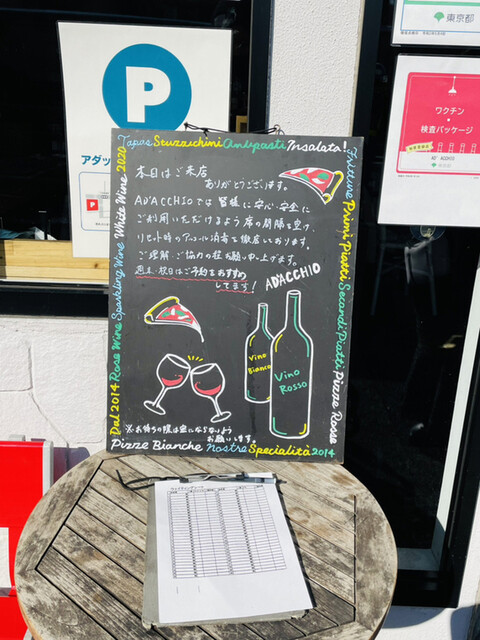 P
アダッ
東京都
ワクチン
・
検査パッケージ
AD'ACCHIO
Tapas Stuzzichini Antipasti Insalata!
Fritture Primi Piatti Secondi Piatti Pizze Rosse
Dal 2014 Rose Wine Sparkling Wine White Wine 2020
本日はご来店
ありがとうございます。
AD'ACCHIOでは皆様に安心・安全に
ご利用いただけるよう席の間隔を空け、
リセット時のアルコール消毒を徹底しております。
ご理解・ご協力の程お願い申し上げます。
週末・祝日はご予約をおすすめ
してます!
AD'ACCHIO
Vino
Bianco
Vino
Rosso
※お待ちの際は密にならないよう
お願いします。
Pizze Bianche Nostre Specialità 2014